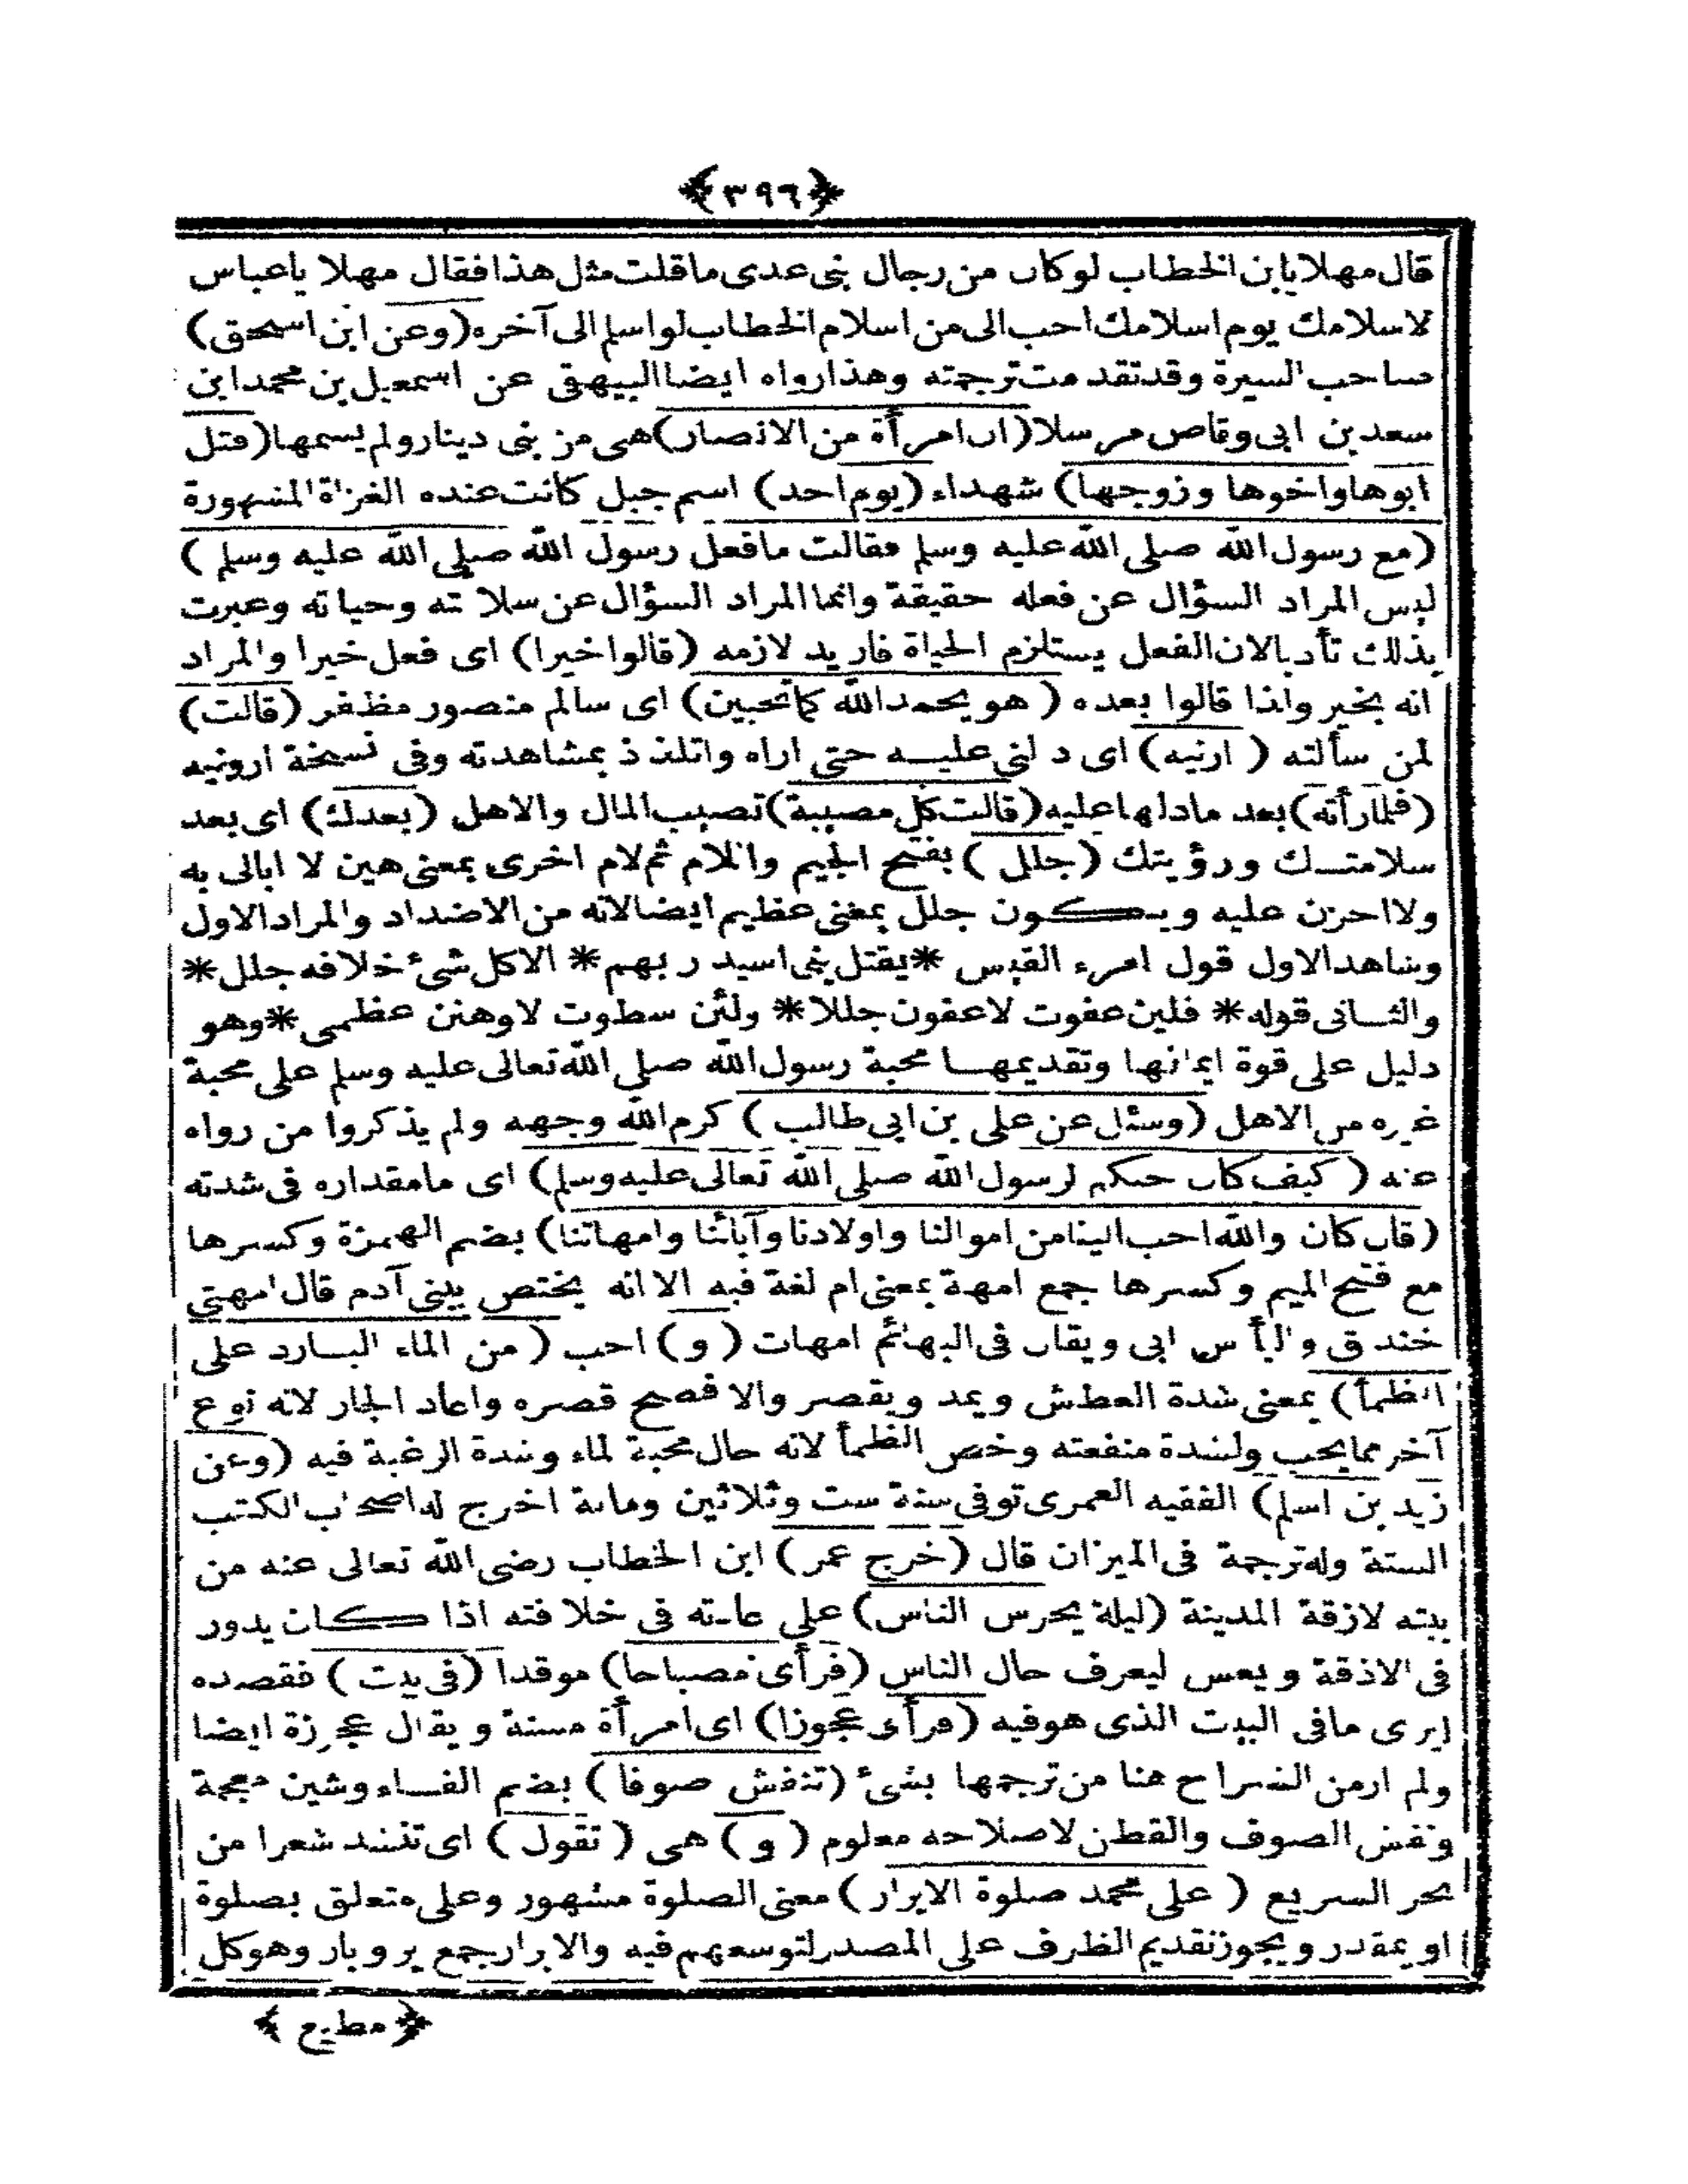 ﴿٣٩٦﴾
قال مهلا يا بن الخطاب لو كان من رجال بنى عدى ما قلت مثل هذا فقال مهلا يا عباس
لاسلامك يوم اسلامك احب الى من اسلام الخطاب لو اسلم الى آخره (وعن ابن اسحق)
صاحب السيرة وقد تقدمت ترجمته وهذا رواه ايضا البيهقى عن اسمعيل بن محمد ابن
سعد بن ابى وقاص مرسلا (ان امرأة من الانصار) هى من بنى دينار ولم يسمها (قتل
ابوها واخوها وزوجها) شهداء (يوم احد) اسم جبل كانت عنده الغزاة المشهورة
(مع رسول الله صلى الله عليه وسلم فقالت ما فعل رسول الله صلى الله عليه وسلم)
ليس المراد السؤال عن فعله حقيقة وانما المراد السؤال عن سلامته وحياته وعبرت
بذلك تأدبا لان الفعل يستلزم الحياة فاريد لازمه (قالوا خيرا) اى فعل خيرا والمراد
انه بخير ولذا قالوا بعده (هو بحمد الله كما تحبين) اى سالم منصور مظفر (قالت)
لمن سألته (ارنيه) اى دلنى عليه حتى اراه واتلذذ بمشاهدته وفى نسخة ارونيه
(فلما رأته) بعد ما دلها عليه (قالت كل مصيبة) تصيب المال والاهل (بعدك) اى بعد
سلامتك ورؤيتك (جلل) بفتح الجيم واللام ثم لام اخرى بمعنى هين لا ابالى به
ولا احزن عليه ويكون جلل بمعنى عظيم ايضا لانه من الاضداد والمراد الاول
وشاهد الاول قول امرء القيس * يقتل بنى اسيد ربهم * الا كل شئ خلافه جلل *
والثانى قوله * فلين عفوت لاعفون جللا * ولئن سطوت لاوهنن عظمى * وهو
دليل على قوة ايمانها وتقديمها محبة رسول الله صلى الله تعالى عليه وسلم على محبة
غيره من الاهل (وسئل عن على بن ابى طالب) كرم الله وجهه ولم يذكروا من رواه
عنه (كيف كان حبكم لرسول الله صلى الله تعالى عليه وسلم) اى ما مقداره فى شدته
(قال كان والله احب الينا من اموالنا واولادنا وآبائنا وامهاتنا) بضم الهمزة وكسرها
مع فتح الميم وكسرها جمع امهة بمعنى ام لغة فيه الا انه يختص ببنى آدم قال امهتى
خندق والياس ابى ويقال فى البهائم امهات (و) احب (من الماء البارد على
الظمأ) بمعنى شدة العطش ويمد ويقصر والافصح قصره واعاد الجار لانه نوع
آخر مما يحب ولشدة منفعته وخص الظمأ لانه حال محبة لماء وشدة الرغبة فيه (وعن
زيد بن اسلم) الفقيه العمرى توفى سنة ست وثلاثين ومائة اخرج له اصحاب الكتب
الستة وله ترجمة فى الميزان قال (خرج عمر) ابن الخطاب رضى الله تعالى عنه من
بيته لازقة المدينة (ليلة يحرس الناس) على عادته فى خلافته اذا كان يدور
فى الاذقة ويعس ليعرف حال الناس (فرأى مصباحا) موقدا (فى بيت) فقصده
ليرى ما فى البيت الذى هو فيه (فرأى عجوزا) اى امرأة مسنة ويقال عجوزة ايضا
ولم ار من الشراح هنا من ترجمها بشئ (تنفش صوفا) بضم الفاء وشين معجمة
ونفش الصوف والقطن لاصلاحه معلوم (و) هى (تقول) اى تنشد شعرا من
بحر السريع (على محمد صلوة الابرار) معنى الصلوة مشهور وعلى متعلق بصلوة
او بمقدر ويجوز تقديم الظرف على المصدر لتوسعهم فيه والابرار جمع بر وبار وهو كل
﴿مطيع﴾